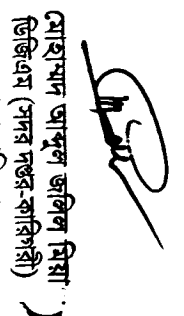 মোহাম্মদ আব্দুল জলিল মিয়া
ডিজিএম (সদর দপ্তর-কারিগরী)